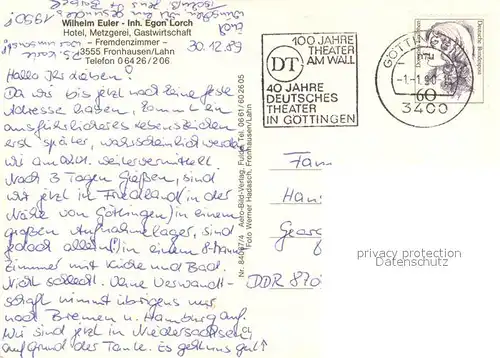 Wilhelm Euler - Inh. Egon Lorch
Hotel, Metzgerei, Gastwirtschaft
- Fremdenzimmer -
3555 Fronhausen/Lahn
Telefon 0 64 26 / 2 06
30.12.89
Hallo Ihr Lieben!
Da wir bis jetzt noch keine feste
Adresse haben, kommt ein
ausführlicheres Lebenszeichen
erst später, wahrscheinlich werden
wir auch noch weitervermittelt.
Nach 3 Tagen Gießen, sind
wir jetzt in Friedland (in der
Nähe von Göttingen) in einem
großen Aufnahmelager, sind
jedoch allein! in einem 8-Mann-
Zimmer mit Küche und Bad.
Nicht schlecht. Deine Verwandt-
schaft nimmt übrigens nur
noch Bremen u. Hamburg auf.
Wir sind jetzt in Niedersachsen,
auf Grund der Tante. Es geht uns gut
Nr. 84087/4 Aero-Bild-Verlag, Fulda, Tel. 06 61 / 60 26 05
Foto Werner Haslasch, Fronhausen/Lahn
100 JAHRE
THEATER
AM WALL
DT
40 JAHRE
DEUTSCHES
THEATER
IN GÖTTINGEN
GÖTTINGEN
-1.-1.90
3400
60
Deutsche Bundespost
Fam.
Han
Georg
DDR 870
privacy protection
Datenschutz